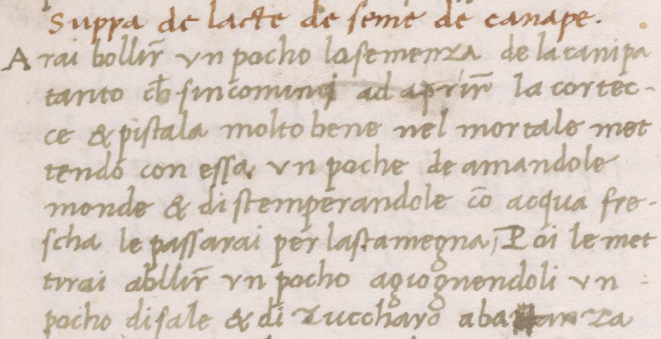 Suppa de lacte de seme de canape.
Arai bollir̄ un pocho la semenza de la canipa
tanto ch̄ sin cominci ad aprir̄ la cortec-
ce & pistala molto bene nel mortale met
tendo con essa un poche de amandole
monde & distemperandole cō acqua fre-
scha le passarai per la stamegna, Poi le met
tirai abllir̄ un pocho agiognendoli un
pocho di sale & di zuccharo aba anza